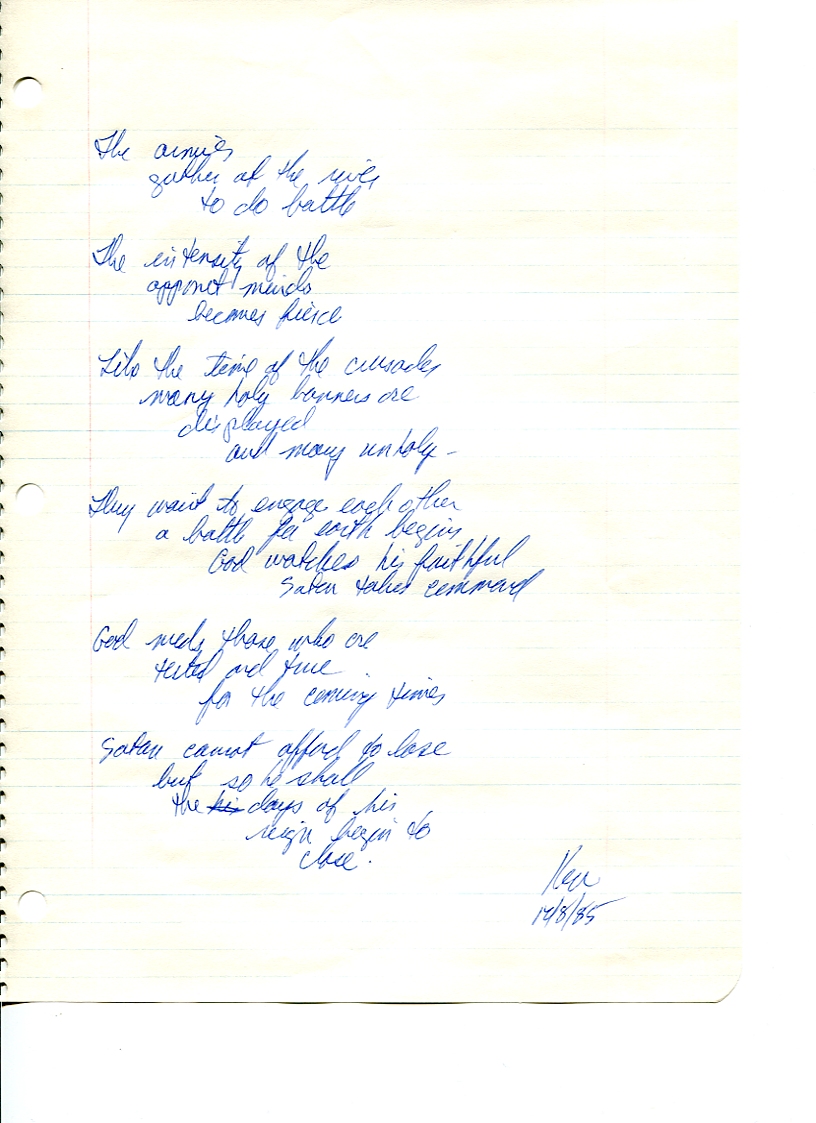 The armies
gather at the river
to do battle
The intensity of the
apponet minds
becomes fierce
Like the time of the crusades
many holy banners are
displayed
and many unholy -
They want to engage each other
a battle for earth begins
God watches his faithful
Satan takes command
God needs those who are
tested and true
for the coming times
Satan cannot afford to lose
but so he shall
the his days of his
reign begin to
close.
/8/85